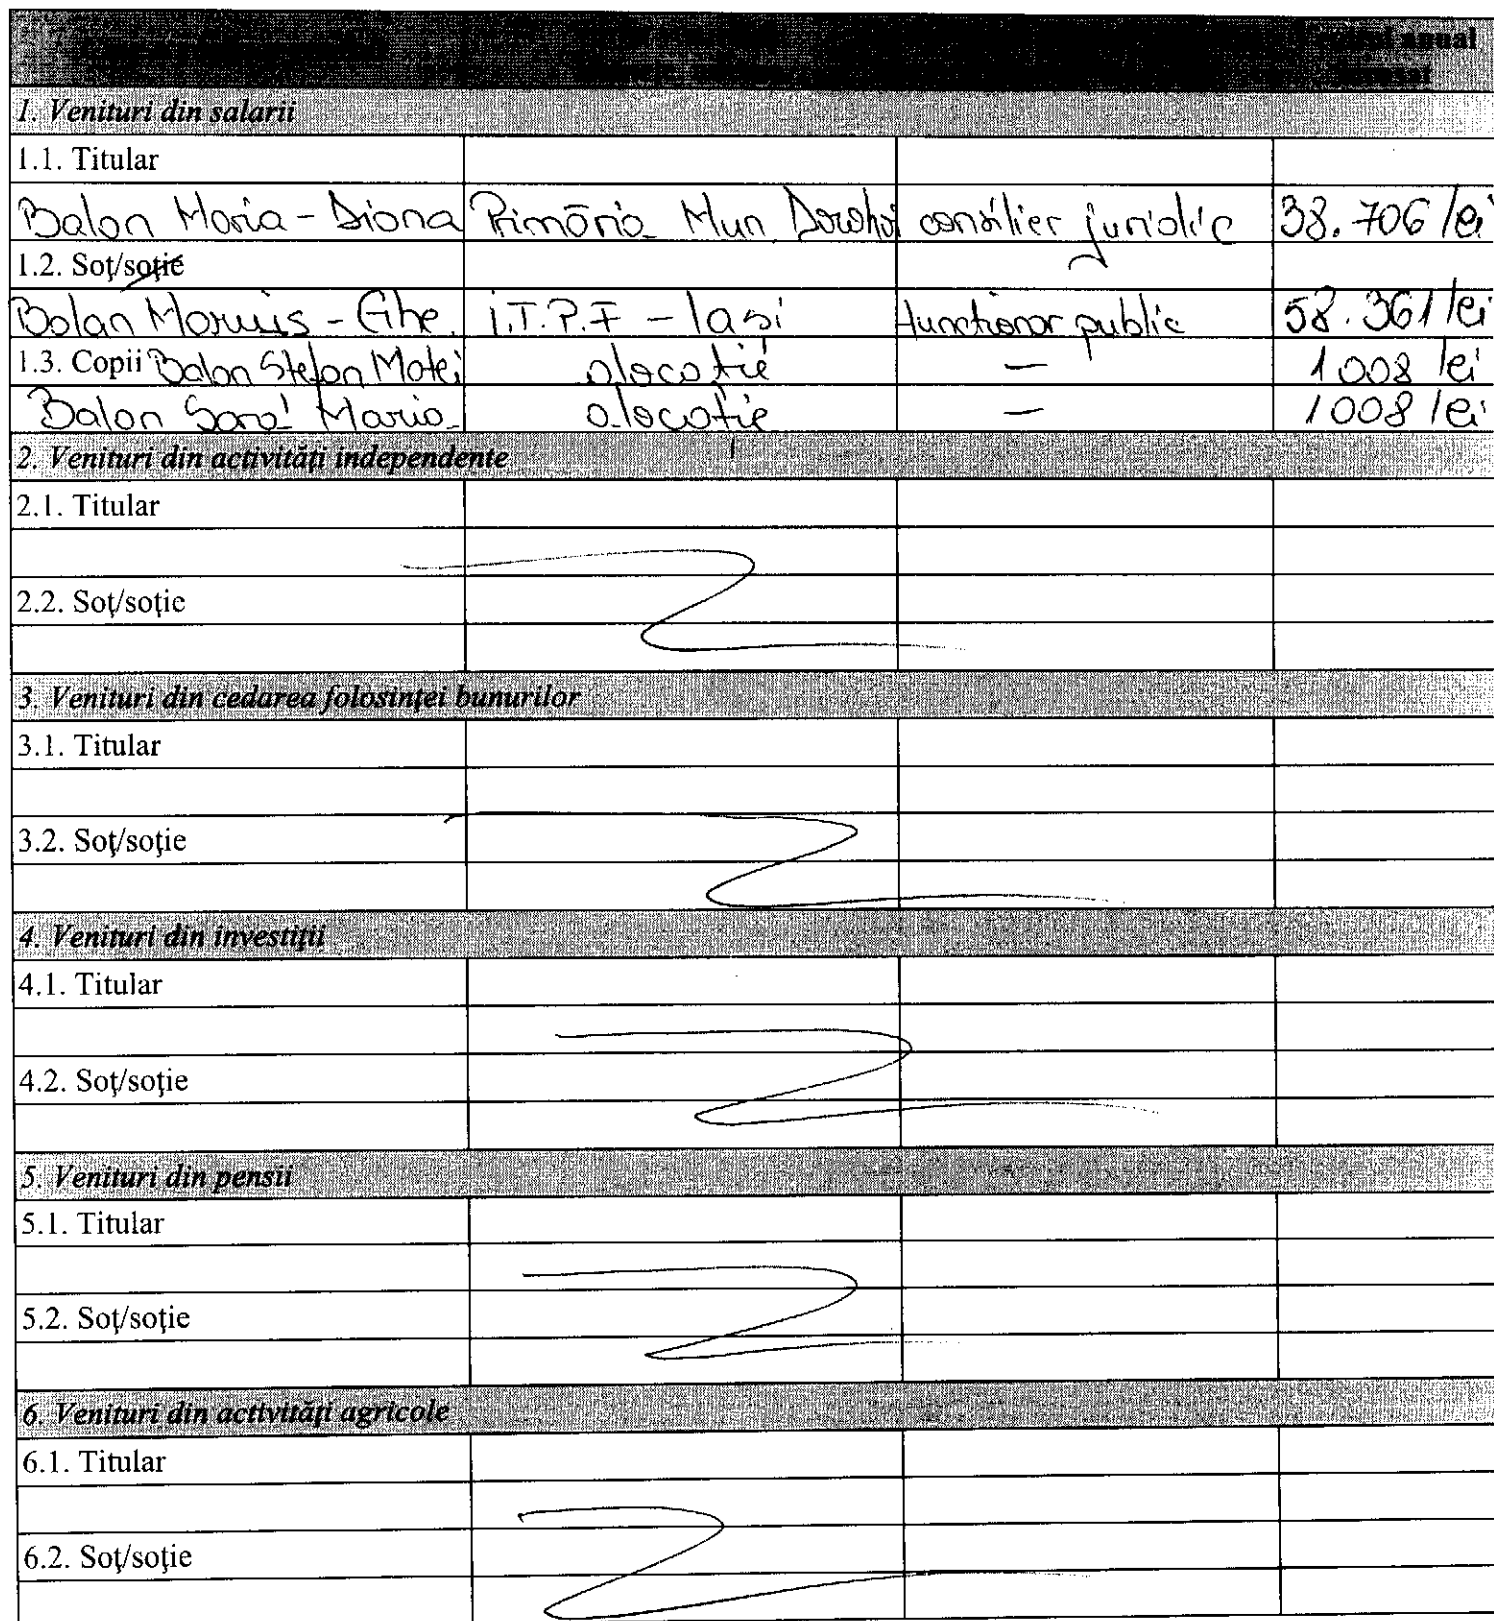 anual
1. Venituri din salarii
1.1. Titular
Balan Maria - Diana Primăria Mun Dorohoi consilier juridic 38.706 lei
1.2. Soţ/soţie
Balan Marius - Ghe. I.T.P.F - Iasi functionar public 58.361 lei
1.3. Copii Balan Stefan Matei alocatie — 1008 lei
Balan Sara Maria alocatie — 1008 lei
2. Venituri din activităţi independente
2.1. Titular
2.2. Soţ/soţie
3. Venituri din cedarea folosinţei bunurilor
3.1. Titular
3.2. Soţ/soţie
4. Venituri din investiţii
4.1. Titular
4.2. Soţ/soţie
5. Venituri din pensii
5.1. Titular
5.2. Soţ/soţie
6. Venituri din activităţi agricole
6.1. Titular
6.2. Soţ/soţie